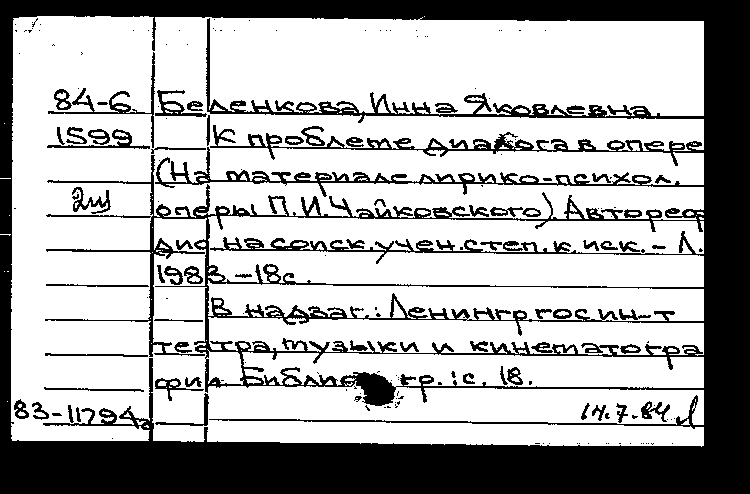 84-6 Беленкова, Инна Яковлевна.
1599 К проблеме диалога в опере
(На материале лирико-психол.
оперы П.И.Чайковского). Автореф
дис. на соиск. учен. степ. к. иск. - Л.
1983. - 18с.
В надзаг.: Ленингр. гос. ин-т
театра, музыки и кинематогра
фии. Библиогр.: с. 18.
83-11794а 14.7.84